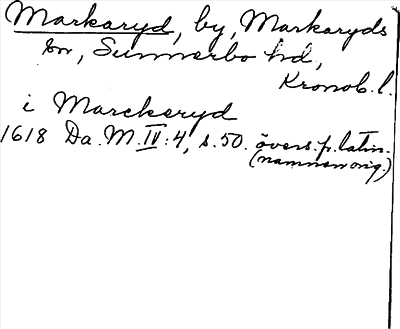 Markaryd, by, Markaryds
sn, Sunnerbo hd,
Kronob. l.
i Marckeryd
1618 Da. M. IV:4, s. 50. övers. p. latin.
(namnen orig.)